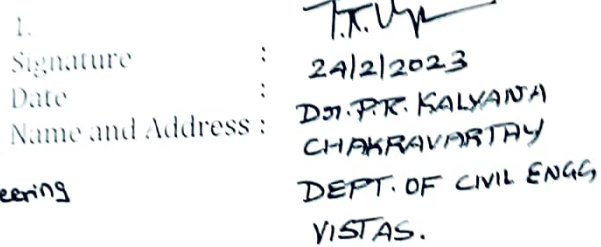 1.
Signature :
Date : 24/2/2023
Name and Address : Dr. P.R. KALYANA
CHAKRAVARTHY
eering DEPT. OF CIVIL ENGG,
VISTAS.